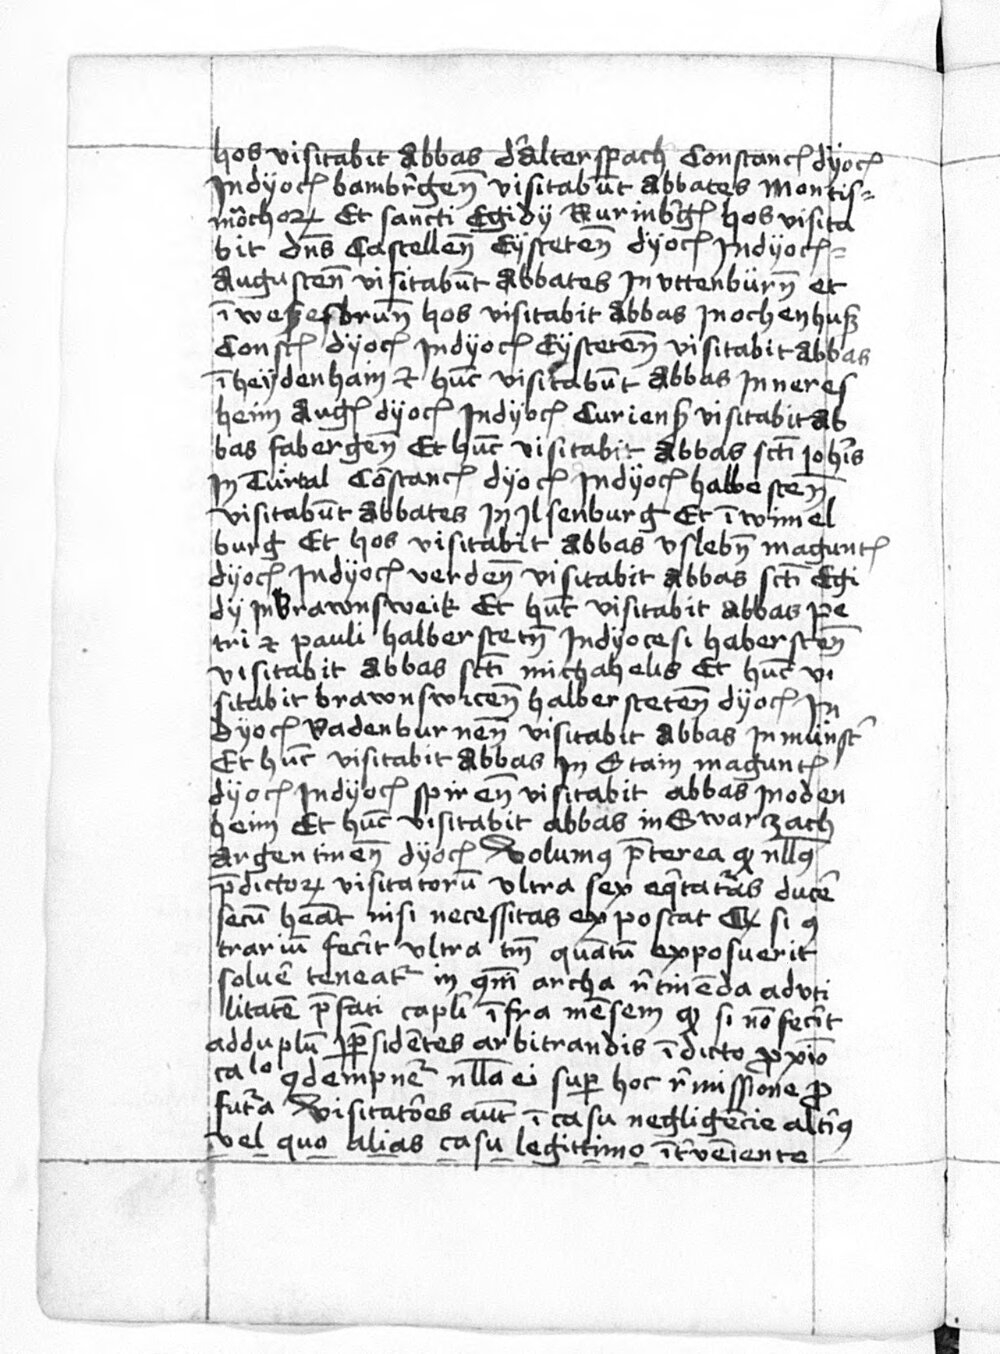 hos visitabit Abbas d̄ alterspach Constancꝭ dÿocꝭ
Indÿocꝭ bamb̄rgen̄ visitabūt Abbates Montis⸗
mōchoꝝ Et sancti Egidÿ Nurinb̄gꝭ hos visita
bit dn̄s Castellen̄ Eÿsteten̄ dÿocꝭ Indÿocꝭ⸗
Augusten̄ visitabūt Abbates In vttenbürn̄ et
ī weßesbrun̄ hos visitabit Abbas Inochenhuß
Constꝭ dÿocꝭ Indÿocꝭ Eÿsteten̄ visitabit Abbas
ī heÿdenhaim ⁊ hūc visitabūt Abbas In neres
heim Augꝭ dÿocꝭ Indÿocꝭ Curienß visitabit Ab
bas fabergen̄ Et hūc visitabit Abbas sct̄i Ioh̄is
In Turtal Cōstancꝭ dÿocꝭ Indÿocꝭ halbesten̄
visitabūt Abbates In Ilsenburg Et ī wimel
burg Et hos visitabit Abbas vslebn̄ maguntꝭ
dÿocꝭ Indÿocꝭ verden̄ visitabit Abbas sct̄i Egi
dÿ In Brawnsweik Et hūc visitabit Abbas pe
tri ⁊ pauli halberstetn̄ Indÿocesi habersten̄
visitabit Abbas sct̄i michahelis Et hūc vi
sitabit brawnswicen̄ halbersteten̄ dÿocꝭ In
dÿocꝭ Padenburnen̄ visitabit Abbas In münst̄
Et hūc visitabit Abbas In Stain maguntꝭ
dÿocꝭ Indÿocꝭ spiren̄ visitabit abbas Inoden
heim Et hūc visitabit abbas in Swarczach
Argentinen̄ dÿocꝭ Volumꝯ p̄terea ꝙ nll̄ꝯ
p̄dictoꝝ visitatorū vltra sex eq̄tatūas ducē
secū heāt nisi necessitas exposcat Et si ꝯ
trariū fecīt vltra tm̄ quātū exposuerit
soluē teneat᷑ in qm̄ archa r̄tinēda advti
litatē p̄fati capl̄i īfra mēsem ꝙ si nō fecīt
adduplū ꝑ p̄sidētes arbitrandis ī dicto ꝓxīo
ca lo ꝯdempnet᷑ nll̄a ei suꝑ hoc r̄missione ꝓ
fut᷑a Visitatōes aūt ī casu negligēcie alt̄iꝯ
vel quo alias casu legittimo īt̄veniente